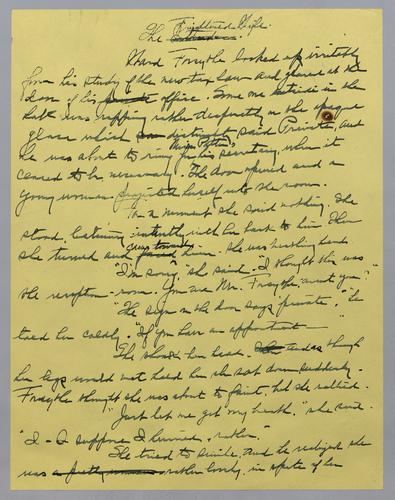 The Frightened Wife.
Ward Forsythe looked up irritably
from his study of the new tax law and glared at the
door of his private office. Some one outside in the
hall was rapping rather desperately on the opaque
glass which distinctly said Private, and
he was about to ring for his secretary, when it
ceased to be necessary. The door opened and a
young woman projected herself into the room.
For a moment she said nothing. She
stood listening intently with her back to him. Then
she turned and faced him. She was breathing hard.
"I'm sorry," she said. "I thought this was
the reception-room. You're Mr. Forsythe, aren't you?"
"The sign on the door says private," he
told her coldly. "If you have an appointment—
She shook her head. And as though
her legs would not hold her she sat down suddenly.
Forsythe thought she was about to faint, but she rallied.
"Just let me get my breath," she said.
"I - I suppose I hurried, rather."
She tried to smile, and he realized she
was a pretty woman rather lovely, in spite of her